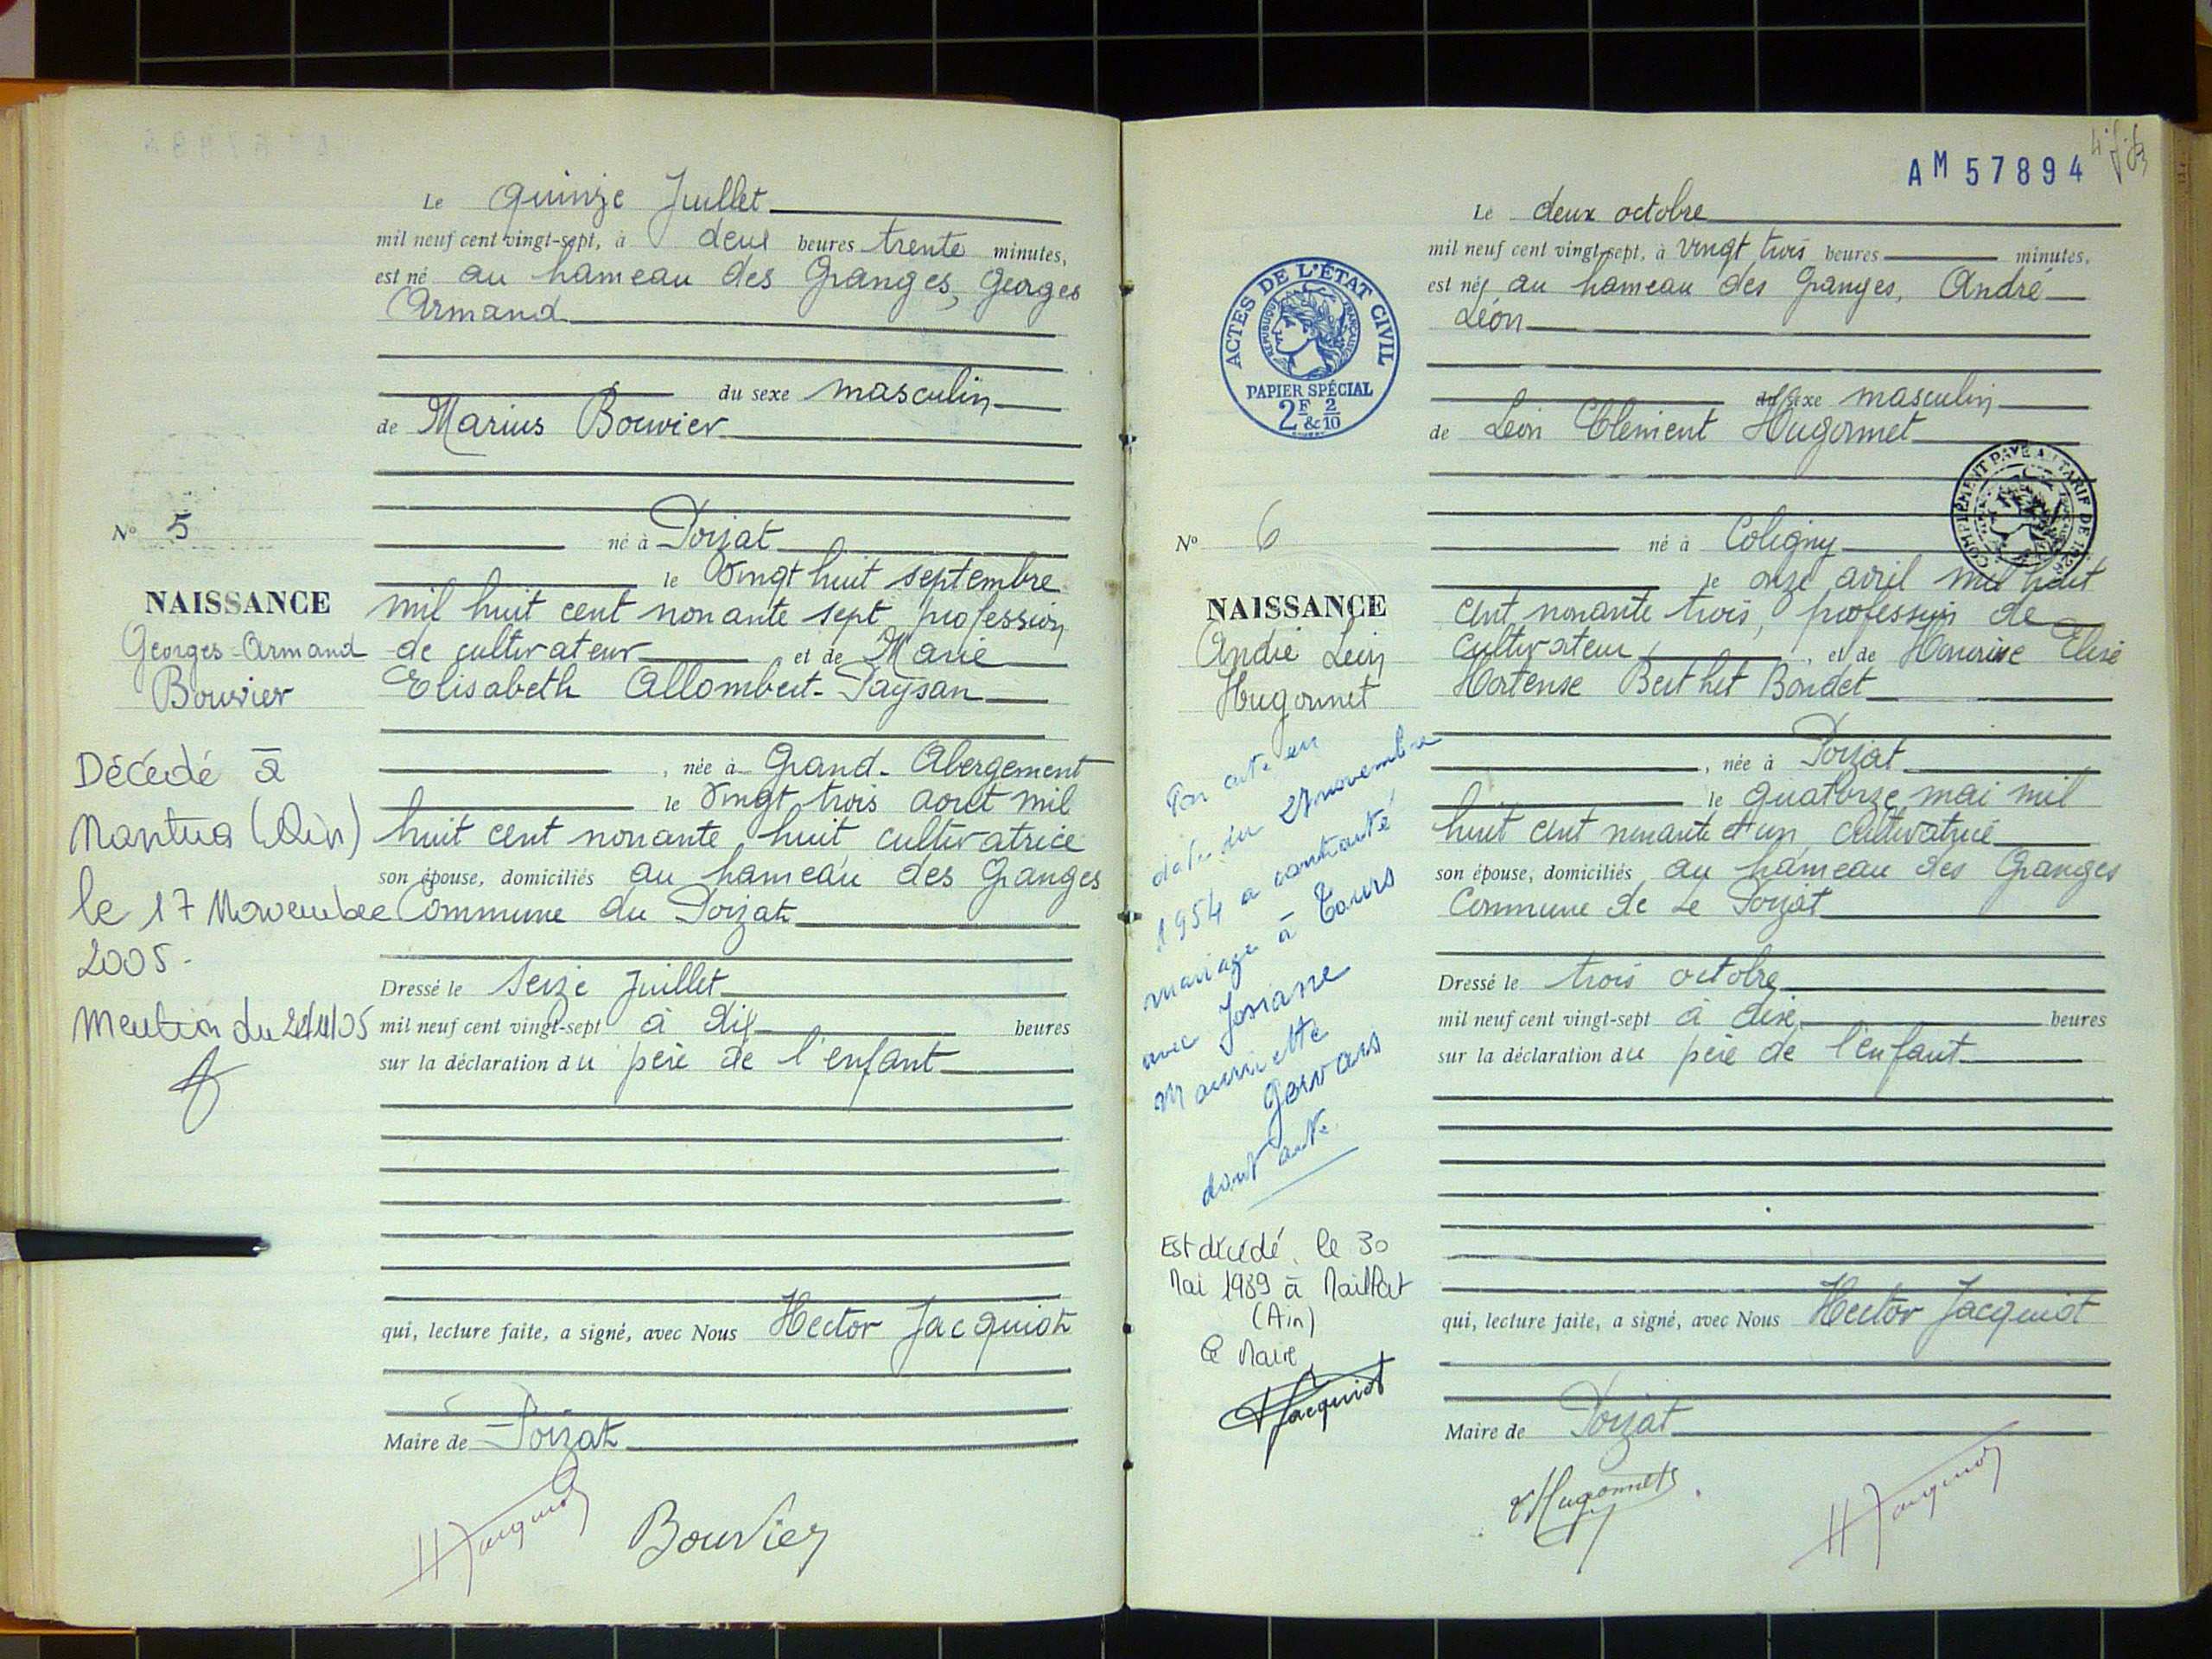 Le quinze Juillet
mil neuf cent vingt-sept, à deux heures trente minutes,
est né au hameau des Granges, Georges
Armand
du sexe masculin
de Marius Bouvier
né à Poizat
le Vingt huit septembre
mil huit cent nonante sept profession
de cultivateur et de Marie
Elisabeth Allombert-Paysan
, née à Grand-Abergement
le Vingt trois aout mil
huit cent nonante huit cultivatrice
son épouse, domiciliés au hameau des Granges
Commune du Poizat
Dressé le seize Juillet
mil neuf cent vingt-sept à dix heures
sur la déclaration du père de l'enfant
qui, lecture faite, a signé, avec Nous Hector Jacquiot
Maire de Poizat
HJacquiot Bouvier
No 5
NAISSANCE
Georges-Armand
Bouvier
Décédé à
Nantua (Ain)
le 17 Novembre
2005.
Mention du
AM57894
Le deux octobre
mil neuf cent vingt-sept, à vingt trois heures minutes,
est né au hameau des Granges, André
Léon
du sexe masculin
de Léon Clément Hugonnet
né à Coligny
le onze avril mil huit
cent nonante trois, profession de
cultivateur, et de Elisé
Hortense Berthet Bondet
, née à Poizat
le quatorze mai mil
huit cent nonante et un, cultivatrice
son épouse, domiciliés au hameau des Granges
Commune de Le Poizat
Dressé le trois octobre
mil neuf cent vingt-sept à dix heures
sur la déclaration du père de l'enfant
qui, lecture faite, a signé, avec Nous Hector Jacquiot
Maire de Poizat
Hugonnet HJacquiot
ACTES DE L'ÉTAT CIVIL
RÉPUBLIQUE FRANÇAISE
PAPIER SPÉCIAL
2F & 2/10
COMPLÉMENT PAYÉ AU TARIF DE 1926
No 6
NAISSANCE
André Léon
Hugonnet
Par acte en
date du 27 novembre
1954 a contracté
mariage à Tours
avec Josiane
Mauricette
Gervais
dont acte
Est décédé le 30
Mai 1989 à Maillat
(Ain)
Le Maire
HJacquiot